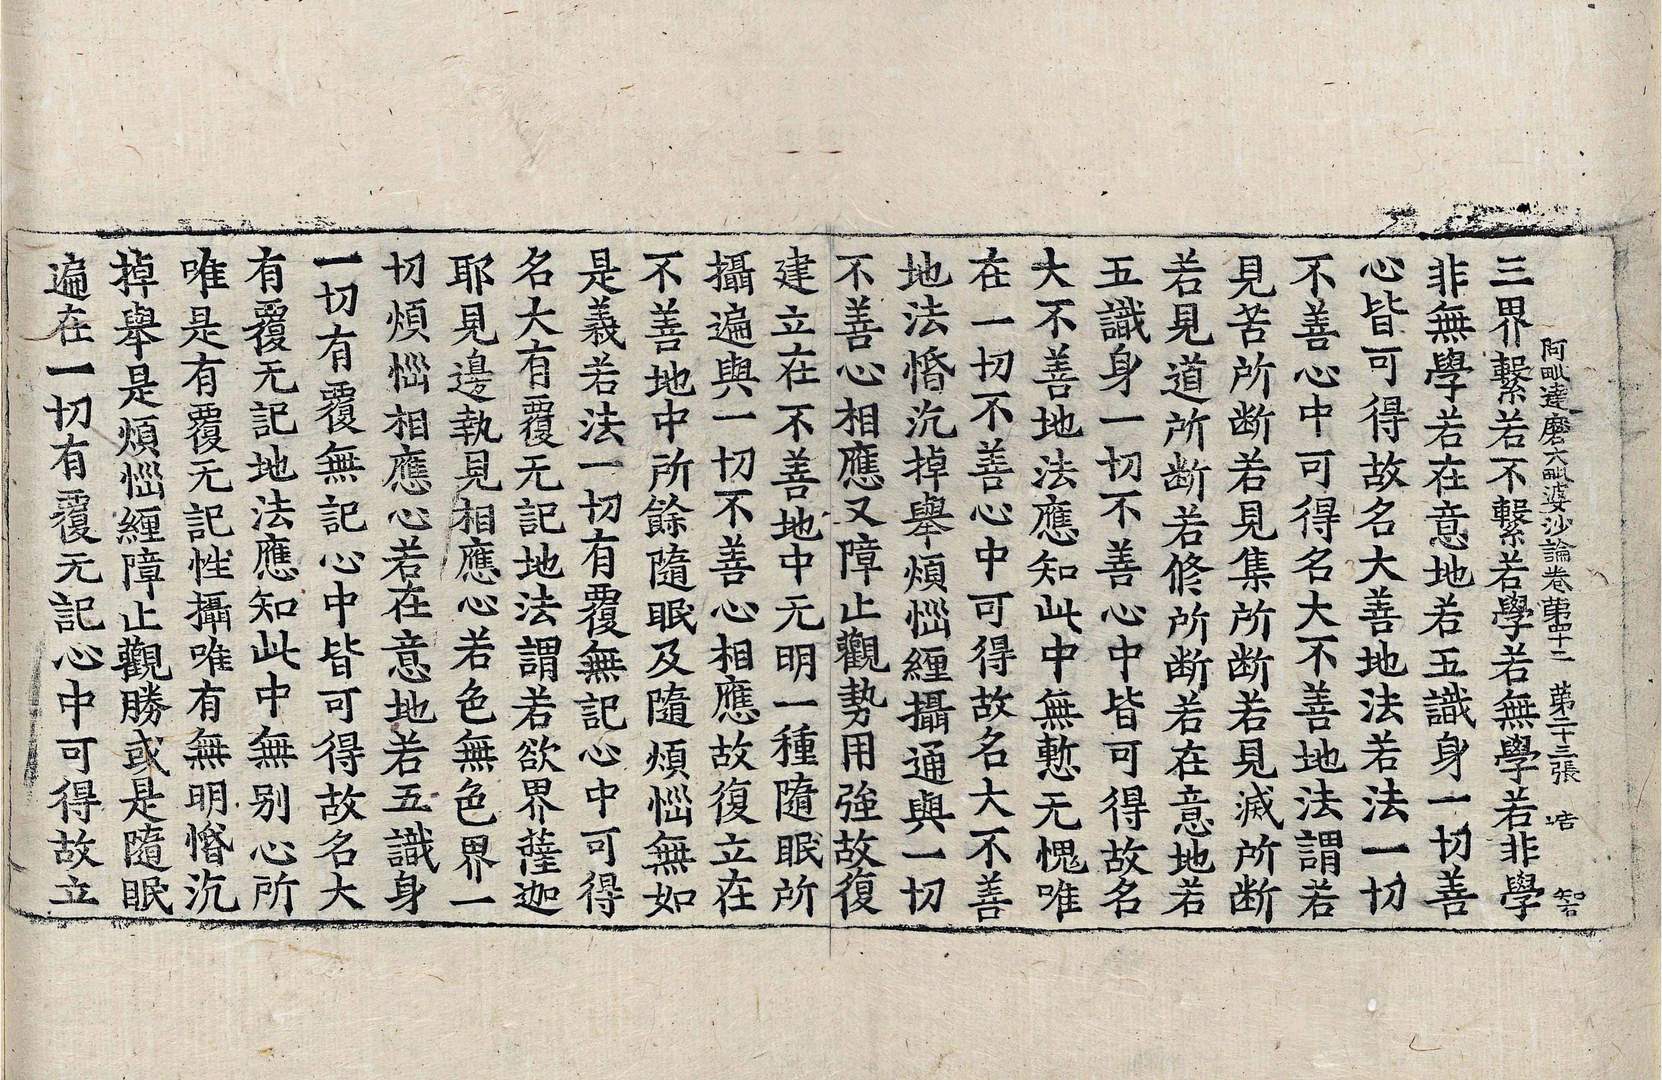 阿毗達磨大毗婆沙論卷苐四十二 苐二十三張 𠯑 智
三界繫若不繫若學若無學若非學
非無學若在意地若五識身一切善
心皆可得故名大善地法若法一切
不善心中可得名大不善地法謂若
見苦所断若見集所断若見滅所断
若見道所断若修所断若在意地若
五識身一切不善心中皆可得故名
大不善地法應知此中無慙无愧唯
在一切不善心中可得故名大不善
地法惛沉掉舉煩惱纏攝通與一切
不善心相應又障止觀勢用強故復
建立在不善地中无明一種隨眠所
攝遍與一切不善心相應故復立在
不善地中所餘隨眠及隨煩惱無如
是義若法一切有覆無記心中可得
名大有覆无記地法謂若欲界薩迦
耶見邊執見相應心若色無色界一
切煩惱相應心若在意地若五識身
一切有覆無記心中皆可得故名大
有覆无記地法應知此中無别心所
唯是有覆无記性攝唯有無明惛沉
掉舉是煩惱纏障止觀勝或是隨眠
遍在一切有覆无記心中可得故立